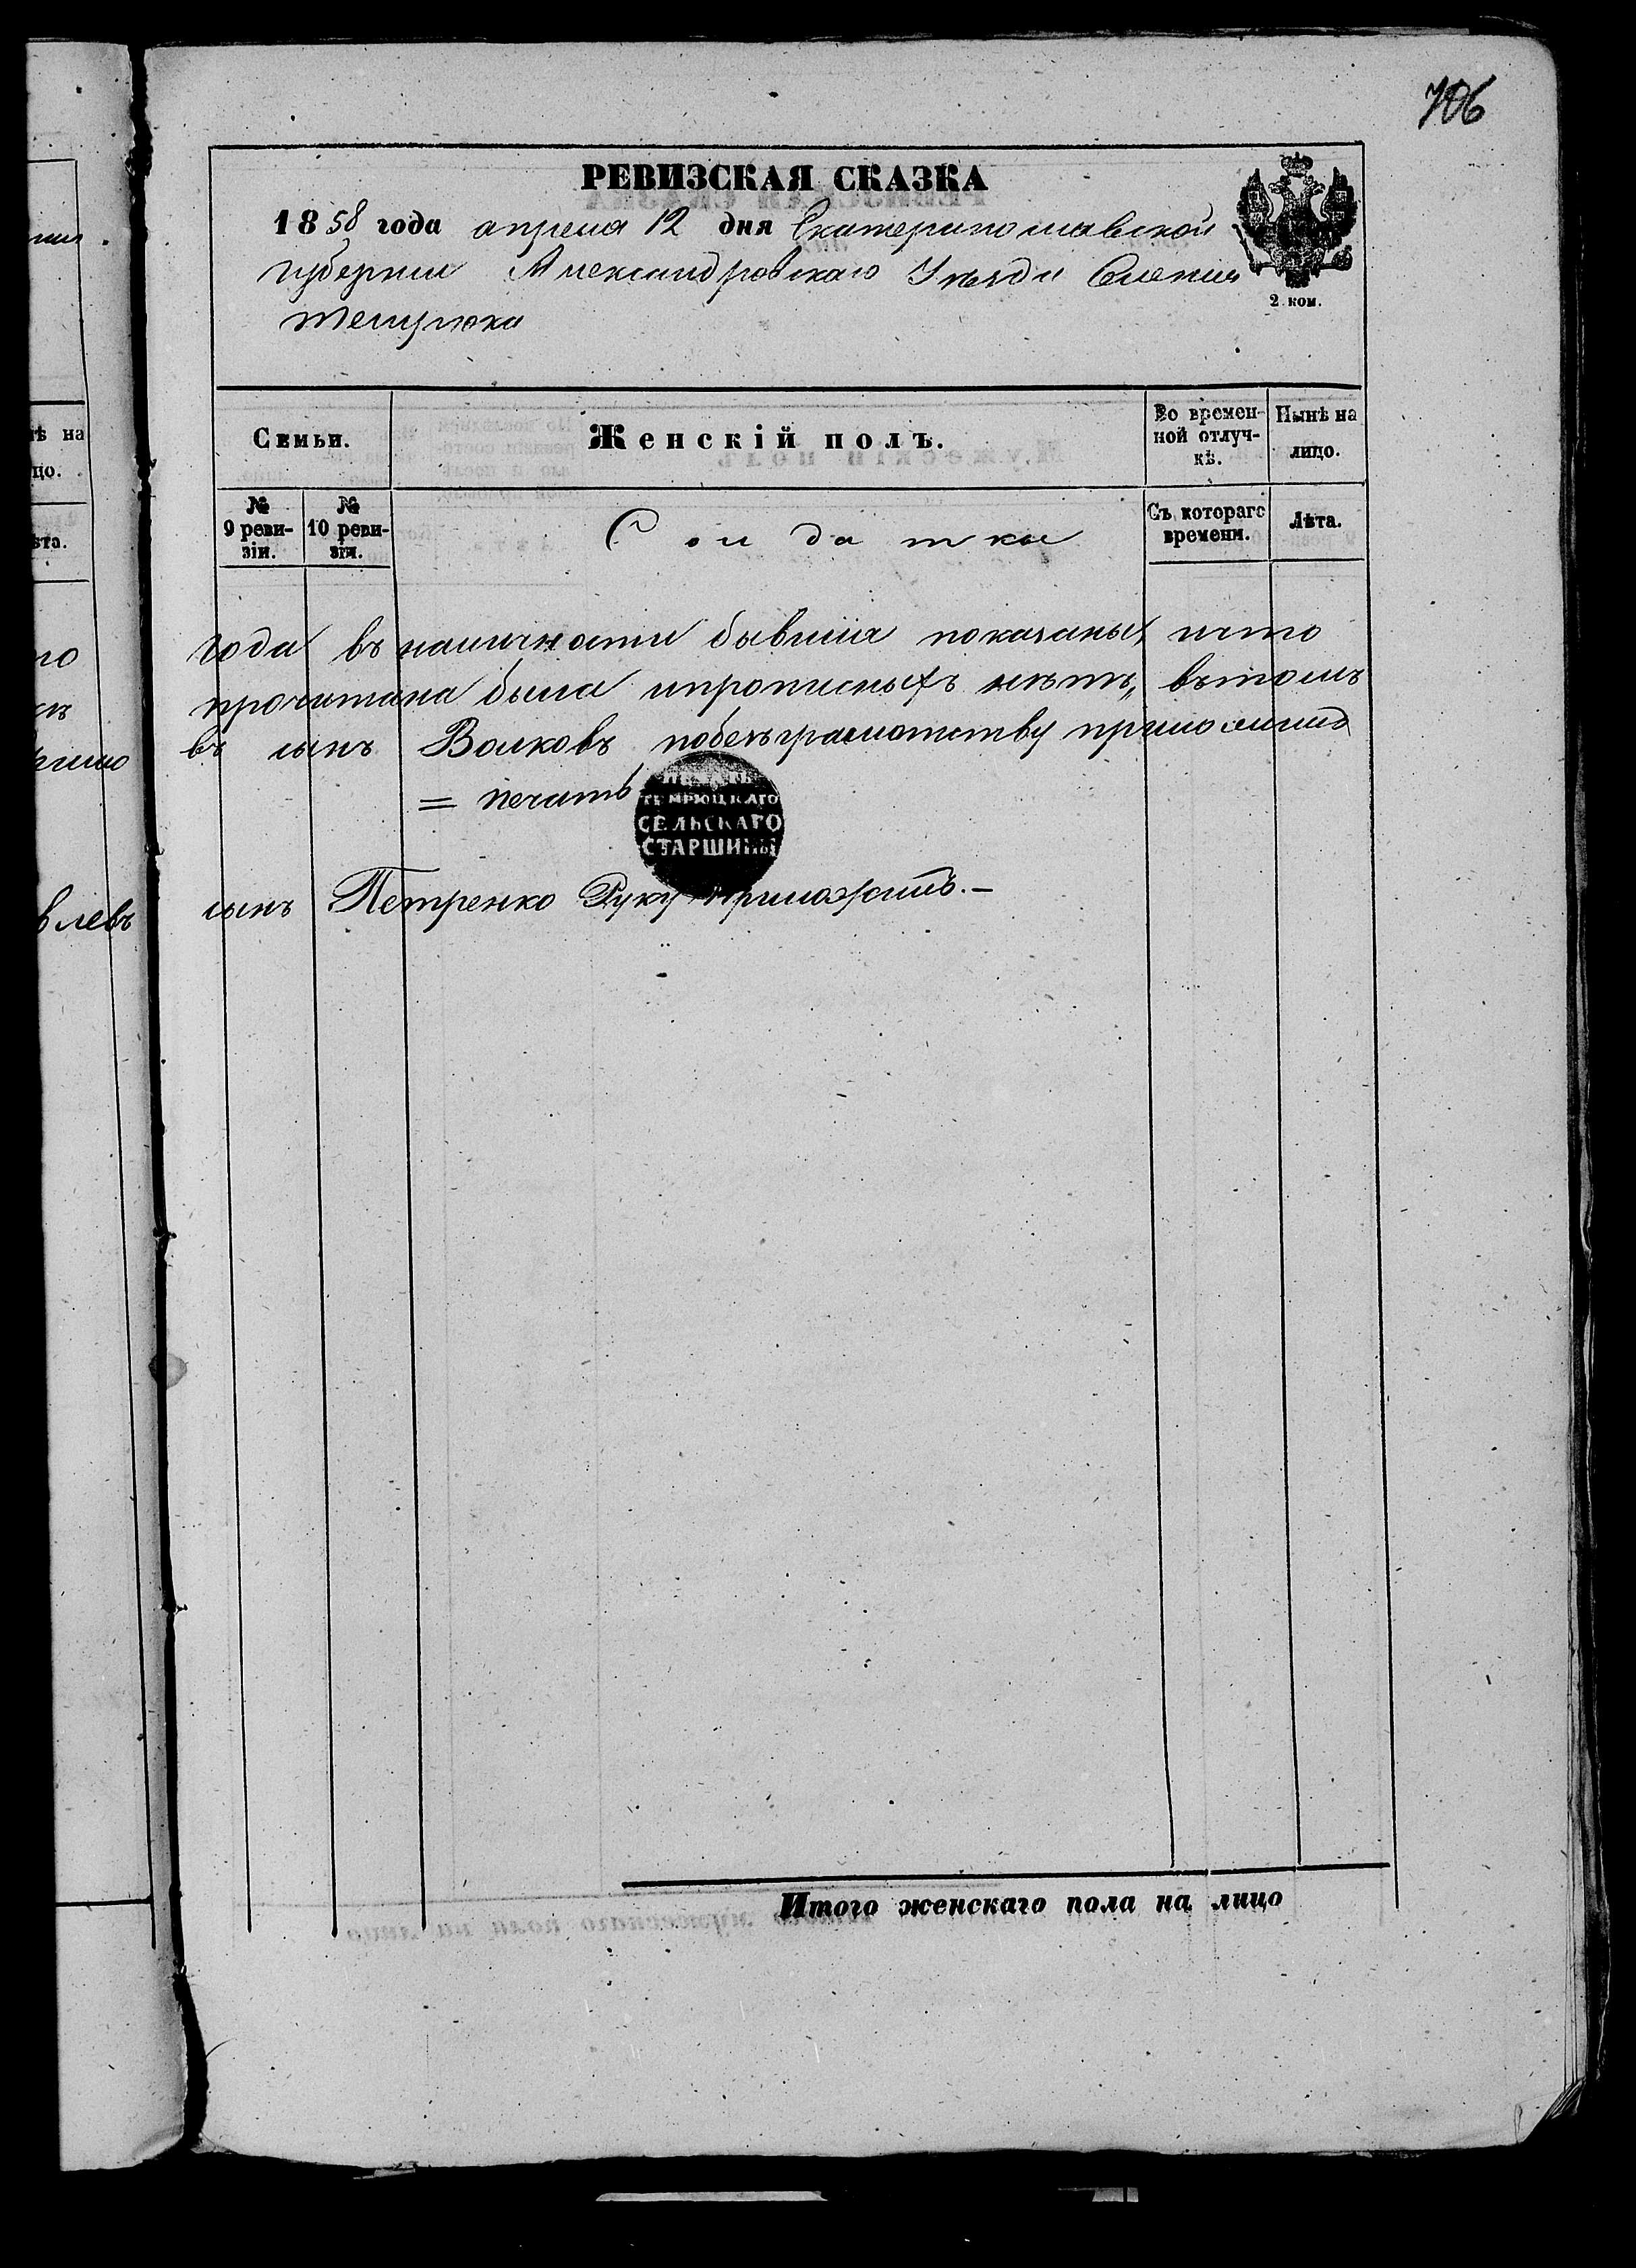 706
РЕВИЗСКАЯ СКАЗКА
1858 года апреля 12 дня Екатеринославской
губернии Александровского Уезда Селения
Темрюка
2 коп.
Семьи.
Женскій полъ.
Во времен-
ной отлуч-
кѣ.
Нынѣ на
лицо.
№
9 реви-
зіи.
№
10 реви-
зіи.
Солдатки
Съ котораго
времени.
Лѣта.
года въ наличности бывшия показаны, что
прочитана была ипрописныхъ нѣтъ, вътомъ
въ сынъ Волковъ побезъграмотству приложилъ
= печать
ПЕЧАТЬ
ТЕМРЮЦКАГО
СЕЛЬСКАГО
СТАРШИНЫ
сынъ Петренко Руку приложилъ.—
Итого женскаго пола на лицо
нѣ на
цо.
ѣта.
влевъ